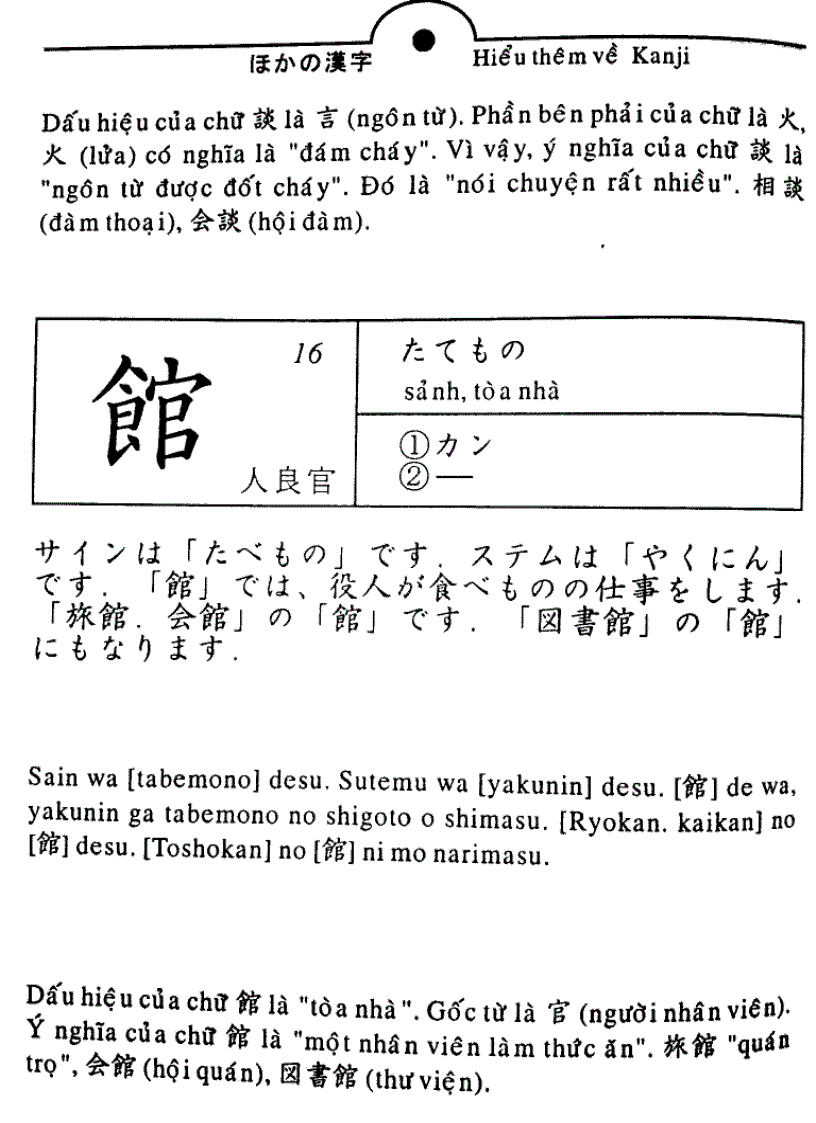 ほかの漢字
Hiểu thêm về Kanji
Dấu hiệu của chữ 談 là 言 (ngôn từ). Phần bên phải của chữ là 火,
火 (lửa) có nghĩa là "đám cháy". Vì vậy, ý nghĩa của chữ 談 là
"ngôn từ được đốt cháy". Đó là "nói chuyện rất nhiều". 相談
(đàm thoại), 会談 (hội đàm).
館
16
人良官
たてもの
sảnh, tòa nhà
①カン
②—
サインは「たべもの」です．ステムは「やくにん」
です．「館」では、役人が食べものの仕事をします．
「旅館．会館」の「館」です．「図書館」の「館」
にもなります．
Sain wa [tabemono] desu. Sutemu wa [yakunin] desu. [館] de wa,
yakunin ga tabemono no shigoto o shimasu. [Ryokan. kaikan] no
[館] desu. [Toshokan] no [館] ni mo narimasu.
Dấu hiệu của chữ 館 là "tòa nhà". Gốc từ là 官 (người nhân viên).
Ý nghĩa của chữ 館 là "một nhân viên làm thức ăn". 旅館 "quán
trọ", 会館 (hội quán), 図書館 (thư viện).